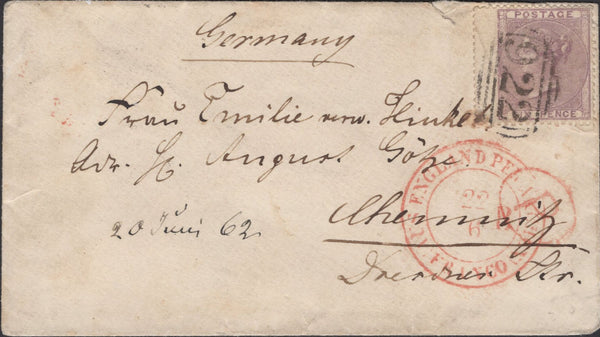 Germany
POSTAGE
PENCE
622
Frau Emilie verw. Hinkel
Adr. H. August Götze
20 Juni 62
Chemnitz
Dresdner Str.
AUS ENGLAND PER A
FRANCO
22
6